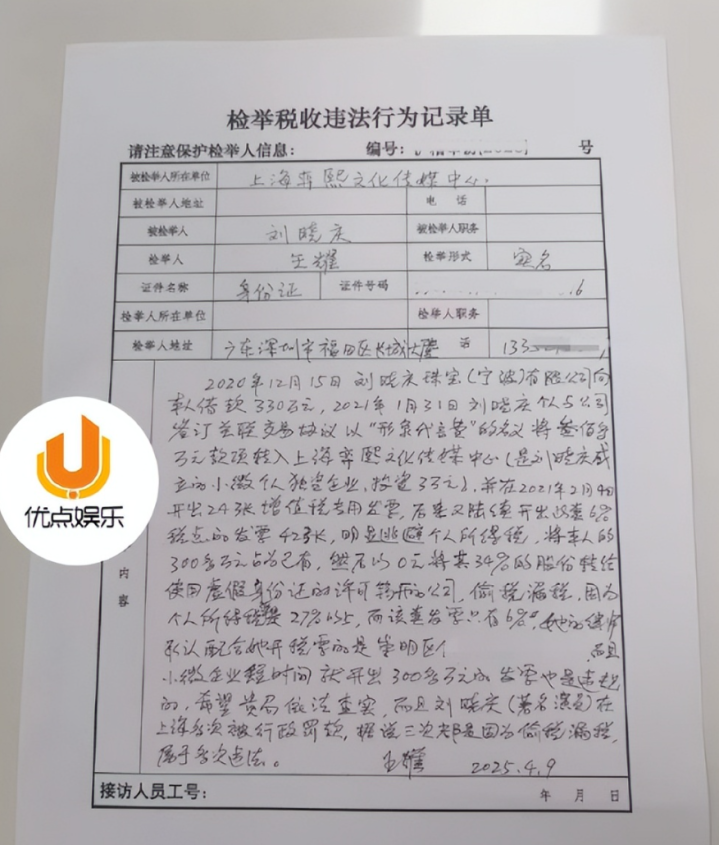 检举税收违法行为记录单
请注意保护检举人信息： 编号： 号
被检举人所在单位 上海弈熙文化传媒中心.
被检举人地址 电 话
被检举人 刘晓庆 被检举人职务
检举人 王耀 检举形式 实名
证件名称 身份证 证件号码 6
检举人所在单位 检举人职务
检举人地址 广东深圳市福田区长城大厦 话 133
2020年12月15日刘晓庆珠宝(宁波)有限公司向
本人借款330万元，2021年1月31日刘晓庆个人与公司
签订关联交易协议以“形象代言费”的名义将叁佰多
万元款项转入上海弈熙文化传媒中心(是刘晓庆成
立的小微个人独资企业，投资3万元)，并在2021年2月4日
开出24张增值税专用发票，后来又陆续开出这套6%
税点的发票42张，明显逃避个人所得税，将本人的
300多万元占为己有，然后以0元将其34%的股份转给
使用虚假身份证的许可转开的公司，偷税漏税，因为
个人所得税是27%以上，而该套发票只有6%。她的律师
承认配合她开税票的是崇明区个 而且
小微企业短时间 就开出300多万元的发票也是违规
的，希望贵局依法查实，而且刘晓庆(著名演员)在
上海多次被行政罚款，据说三次都是因为偷税漏税，
属于多次违法。 王耀 2025.4.9
内容
接访人员工号： 年 月 日
优点娱乐